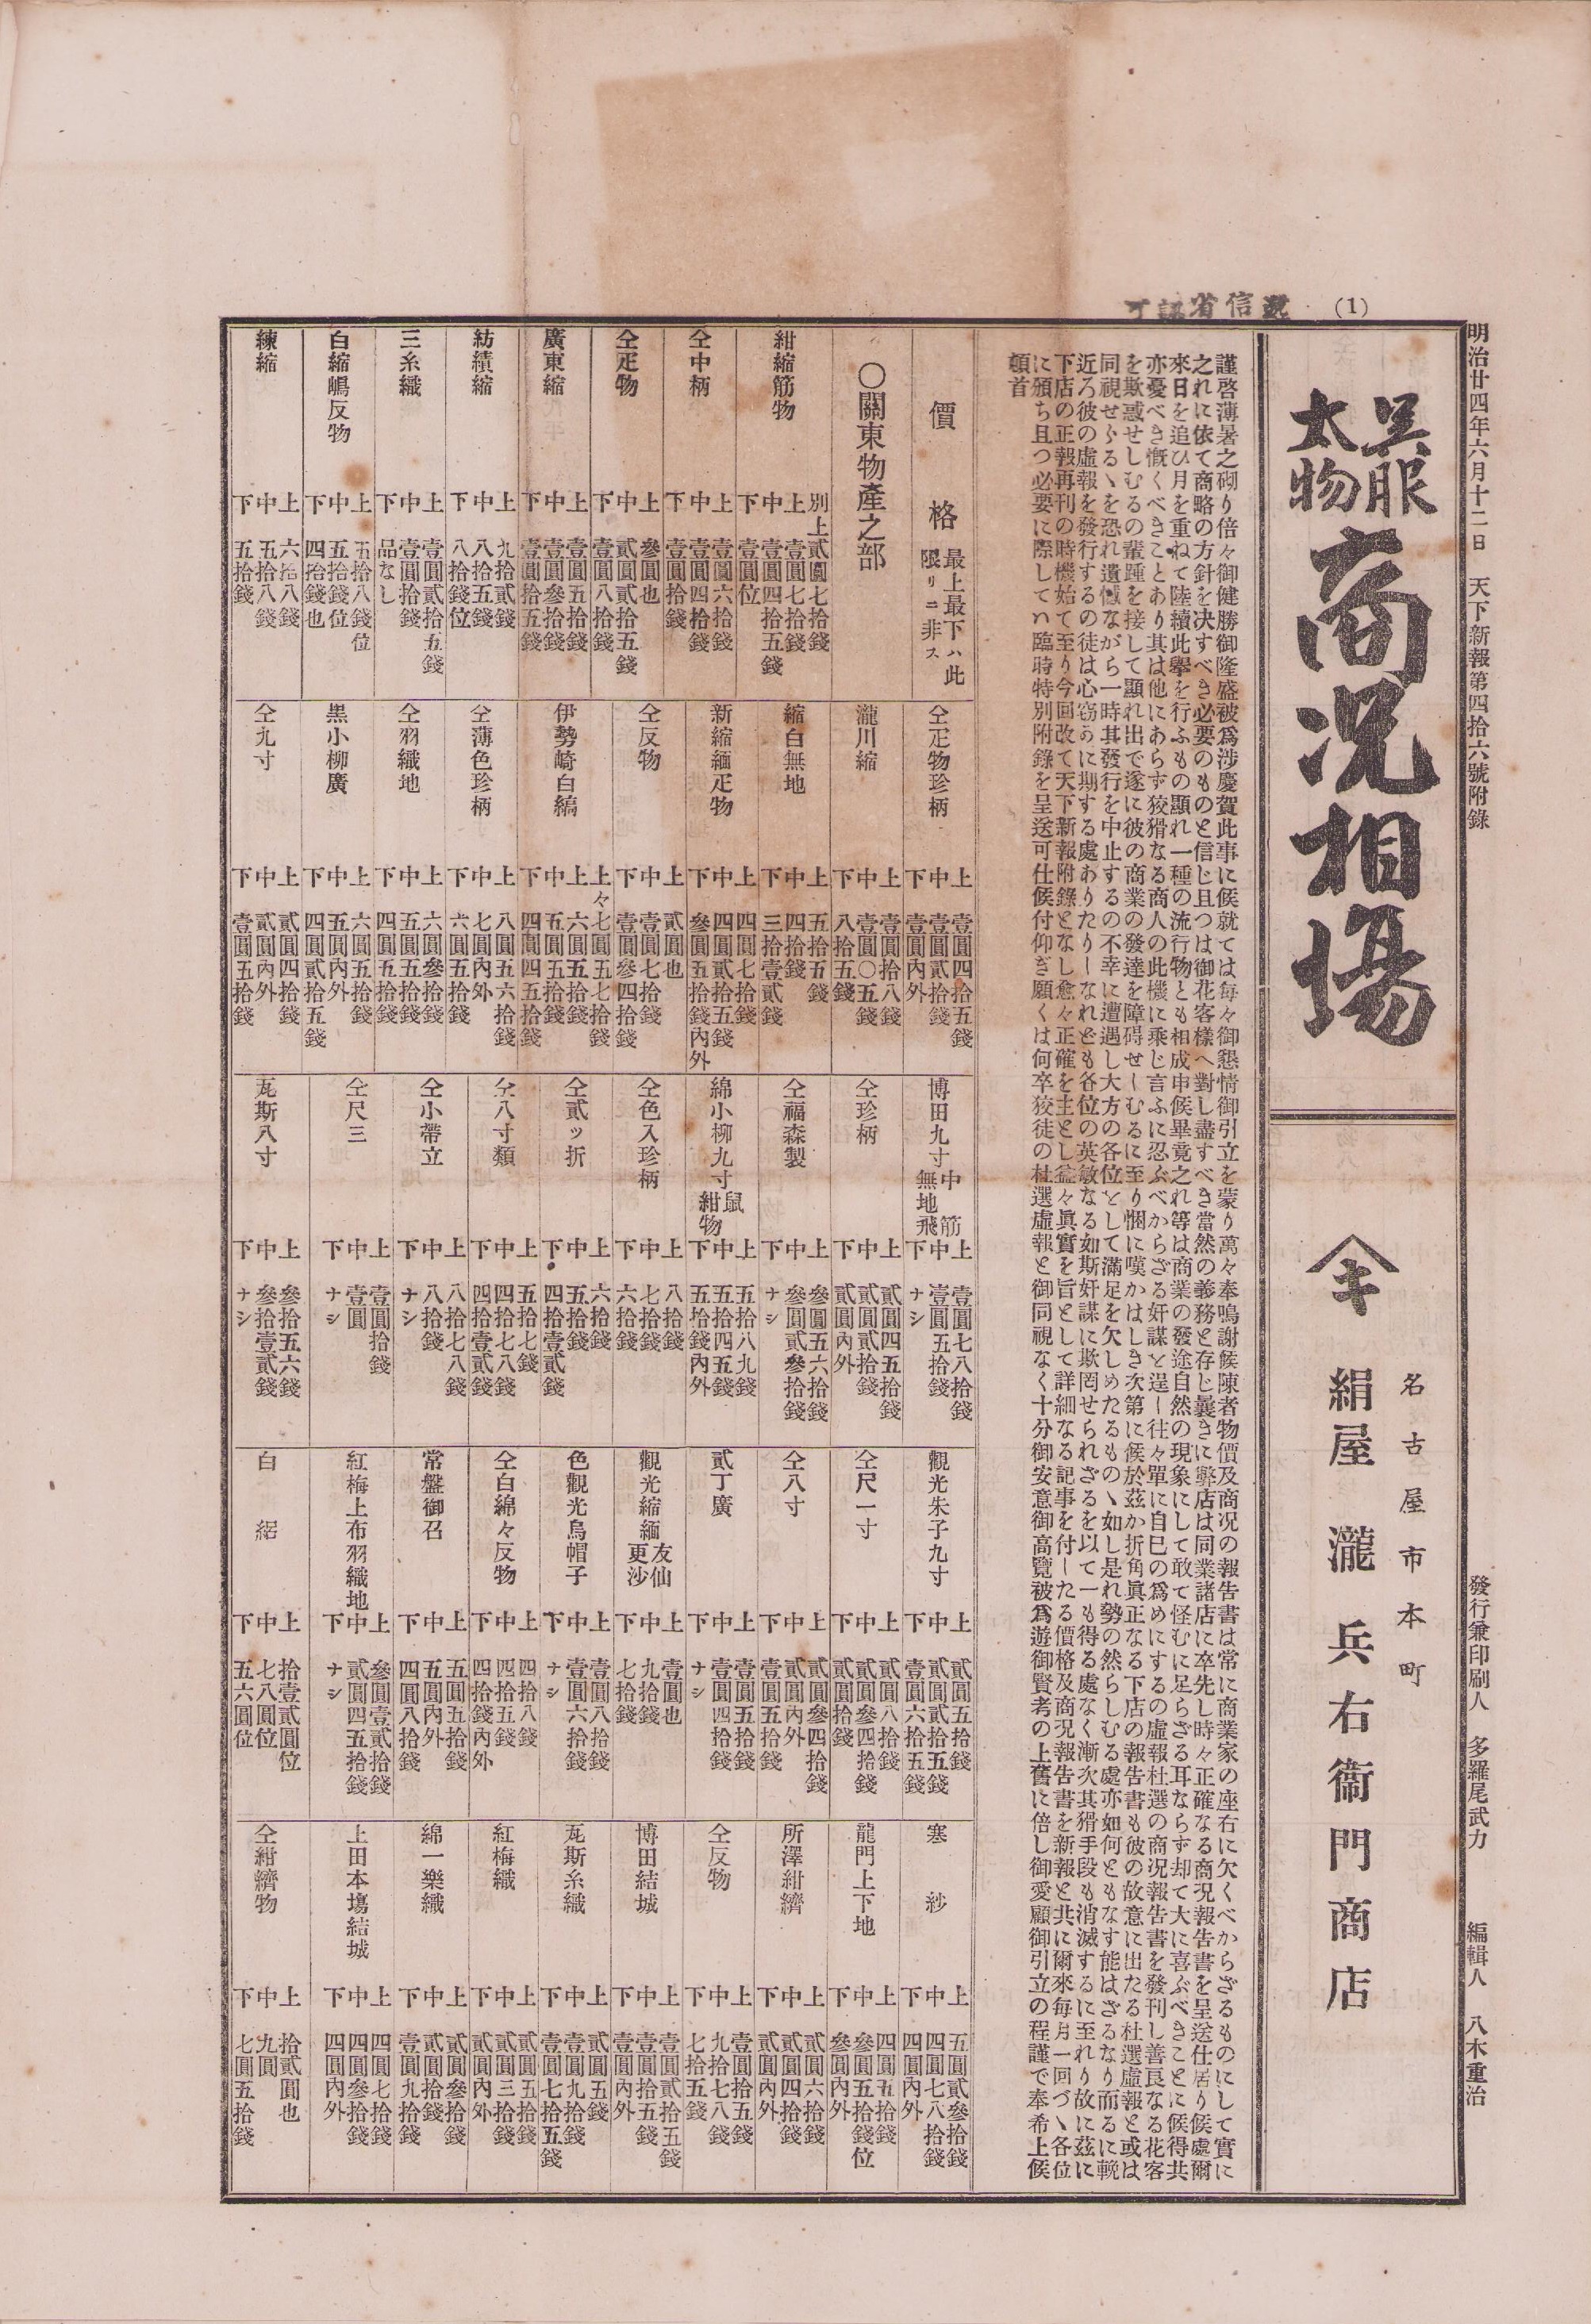 明治廿四年六月十二日　天下新報第四拾六號附錄　發行兼印刷人　多羅尾武力　編輯人　八木重治
(1)
遞信省認可
吳服
太物
商况相塲
名古屋市本町
絹屋　瀧兵右衞門商店
謹啓薄暑之砌り倍々御健勝御隆盛被爲涉慶賀此事に候就ては每々御懇情御引立を蒙り萬々奉鳴謝候陳者物價及商况の報告書は常に商業家の座右に欠くべからざるものにして實に
之れに依て商略の方針を决すべき必要のものと信じ且つは御花客樣へ對し盡すべき當然の義務と存じ曩きに弊店は同業諸店に卒先し時々正確なる商况報告書を呈送仕居り候處爾
來日を追ひ月を重ねて陸續此擧を行ふもの顯れ一種の流行物とも相成申候畢竟之れ等は商業の發途自然の現象にして敢て怪むに足らざる耳ならす却て大に喜ぶべきことに候得共
亦憂べき慨くべきことあり其は他にあらず狡猾なる商人の此機に乘じ言ふに忍ぶべからざる奸謀を逞ー往々單に自巳の爲めにするの虛報杜選の商况報告書を發刊し善良なる花客
を欺惑せしむるの輩踵を接して顯れ出で遂に彼の商業の發達を障碍せーむるに至り慨に嘆かはしき次第に候於茲か折角眞正なる下店の報告書も彼の故意に出たる杜選虛報と或は
同視せらるヽを恐れ遺憾ながら一時其發行を中止するの不幸に遭遇し大方の各位をして滿足を欠しめたるものヽ如し是れ勢の然らしむる處亦如何ともなす能はざるなり而るに輓
近ろ彼の虛報を發行するの徒は心窃かに期する處ありたりーなれども各位の英敏なる如斯奸謀に欺罔せられざるを以て一も得る處なく漸次其猾手段も消滅するに至れり故に茲に
下店の正報再刊の時機始て至り今回改て天下新報附錄となし愈々正確を主とし益々眞實を旨として詳細なる記事を付ーたる價格及商况報告書を新報と共に爾來每月一回づヽ各位
に頒ち且つ必要に際してハ臨時特別附錄を呈送可仕候付仰ぎ願くは何卒狡徒の杜選虛報と御同視なく十分御安意御高覽被爲遊御賢考の上舊に倍し御愛顧御引立の程謹で奉希上候
頓首
價格　最上最下ハ此限リニ非ス
○關東物產之部
紺縮筋物　別上　貳圓七拾錢　上　壹圓七拾錢　中　壹圓四拾五錢　下　壹圓位
仝中柄　上　壹圓六拾錢　中　壹圓四拾錢　下　壹圓拾錢
仝疋物　上　參圓也　中　貳圓貳拾五錢　下　壹圓八拾錢
廣東縮　上　壹圓五拾錢　中　壹圓參拾錢　下　壹圓拾五錢
紡績縮　上　九拾貳錢　中　八拾五錢　下　八拾錢位
三糸織　上　壹圓貳拾五錢　中　壹圓拾錢　下　品なし
白縮嶋反物　上　五拾八錢位　中　五拾錢位　下　四拾錢也
練縮　上　六拾八錢　中　五拾八錢　下　五拾錢
仝疋物珍柄　上　壹圓四拾五錢　中　壹圓貳拾錢　下　壹圓內外
瀧川縮　上　壹圓拾八錢　中　壹圓〇五錢　下　八拾五錢
縮白無地　上　五拾五錢　中　四拾錢　下　三拾壹貳錢
新縮緬疋物　上　四圓七拾錢　中　四圓貳拾五錢　下　參圓五拾錢內外
仝反物　上　貳圓也　中　壹圓七拾錢　下　壹圓參四拾錢
伊勢崎白縞　上々　七圓五七拾錢　上　六圓五拾錢　中　五圓五拾錢　下　四圓四五拾錢
仝薄色珍柄　上　八圓五六拾錢　中　七圓內外　下　六圓五拾錢
仝羽織地　上　六圓參拾錢　中　五圓五拾錢　下　四圓五拾錢
黑小柳廣　上　六圓五拾錢　中　五圓內外　下　四圓貳拾五錢
仝九寸　上　貳圓四拾錢　中　貳圓內外　下　壹圓五拾錢
博田九寸　中筋　無地飛　上　壹圓七八拾錢　中　壹圓五拾錢　下　ナシ
仝珍柄　上　貳圓四五拾錢　中　貳圓貳拾錢　下　貳圓內外
仝福森製　上　參圓五六拾錢　中　參圓貳參拾錢　下　ナシ
綿小柳九寸　鼠　紺物　上　五拾八九錢　中　五拾四五錢　下　五拾錢內外
仝色入珍柄　上　八拾錢　中　七拾錢　下　六拾錢
仝貳ッ折　上　六拾錢　中　五拾錢　下　四拾壹貳錢
仝八寸類　上　五拾七錢　中　四拾七八錢　下　四拾壹貳錢
仝小帶立　上　八拾七八錢　中　八拾錢　下　ナシ
仝尺三　上　壹圓拾錢　中　壹圓　下　ナシ
瓦斯八寸　上　參拾五六錢　中　參拾壹貳錢　下　ナシ
觀光朱子九寸　上　貳圓五拾錢　中　貳圓貳拾五錢　下　壹圓六拾五錢
仝尺一寸　上　貳圓八拾錢　中　貳圓參四拾錢　下　貳圓拾錢
仝八寸　上　貳圓參四拾錢　中　貳圓內外　下　壹圓五拾錢
貳丁廣　上　壹圓五拾錢　中　壹圓四拾錢　下　ナシ
觀光縮緬　友仙　更沙　上　壹圓也　中　九拾錢　下　七拾錢
色觀光烏帽子　上　壹圓八拾錢　中　壹圓六拾錢　下　ナシ
仝白綿々反物　上　四拾八錢　中　四拾五錢　下　四拾錢內外
常盤御召　上　五圓五拾錢　中　五圓內外　下　四圓八拾錢
紅梅上布羽織地　上　參圓壹貳拾錢　中　貳圓四五拾錢　下　ナシ
白絽　上　拾壹貳圓位　中　七八圓位　下　五六圓位
塞紗　上　五圓貳參拾錢　中　四圓七八拾錢　下　四圓內外
龍門上下地　上　四圓五拾錢　中　參圓五拾錢位　下　參圓內外
所澤紺縞　上　貳圓六拾錢　中　貳圓四拾錢　下　貳圓內外
仝反物　上　壹圓拾五錢　中　九拾七八錢　下　七拾五錢
博田結城　上　壹圓貳拾五錢　中　壹圓拾五錢　下　壹圓內外
瓦斯糸織　上　貳圓五錢　中　壹圓九拾錢　下　壹圓七拾五錢
紅梅織　上　貳圓五拾錢　中　貳圓三拾錢　下　貳圓內外
綿一樂織　上　貳圓參拾錢　中　貳圓拾錢　下　壹圓九拾錢
上田本塲結城　上　四圓七拾錢　中　四圓參拾錢　下　四圓內外
仝紺縞物　上　拾貳圓也　中　九圓　下　七圓五拾錢